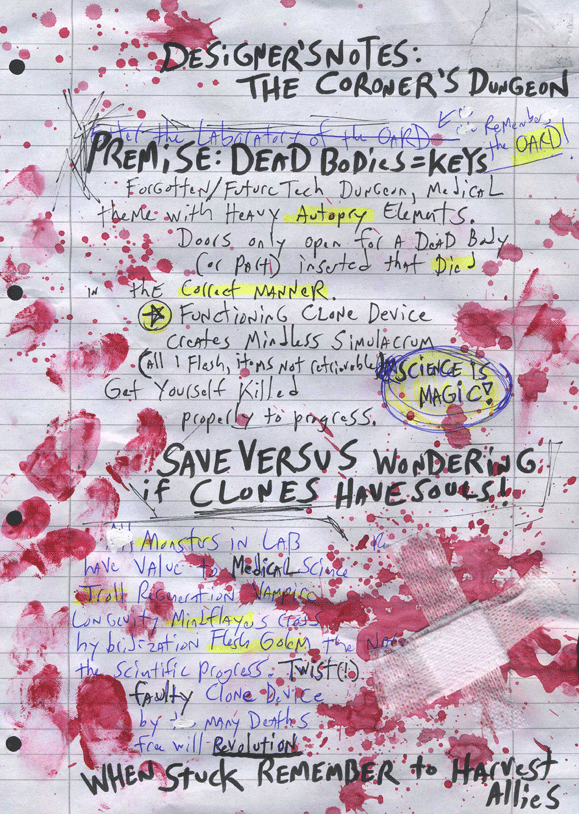 DESIGNER'S NOTES:
THE CORONER'S DUNGEON
Enter the LABORATORY of the OARD
Remember
the OARD!
PREMISE: DEAD BODIES = KEYS
FORGOTTEN/FUTURE TECH DUNGEON, MEDICAL
theme with HEAVY Autopry ELEMENTS.
Doors only open for A DEAD BODY
(or PART) inserted that Died
in the CORRECT MANNER.
FUNCTIONING CLONE DEVICE
creates MINDLESS SIMULACRUM
(All 1 Flesh, items not retrievable)
SCIENCE IS
MAGIC!
Get Yourself Killed
properly to progress.
SAVE VERSUS WONDERING
if CLONES HAVE SOULS!
Monsters in LAB
have VALUE to MEDICAL Science
Troll Regeneration Vampire
Longevity Mindflayers Cross
hybridization Flesh Golem the
the scientific progress. Twist(!)
faulty CLONE DEVICE
by MANY Deaths
Free will Revolution
WHEN STUCK REMEMBER to HARVEST
Allies